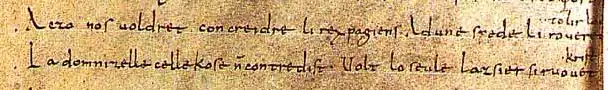 tolir lo
A czo nos voldret concreidre li rex pagiens. Ad une spede li roveret
krist
La domnizelle celle kose n̄ contredist. Volt lo seule lazsier si ruovet